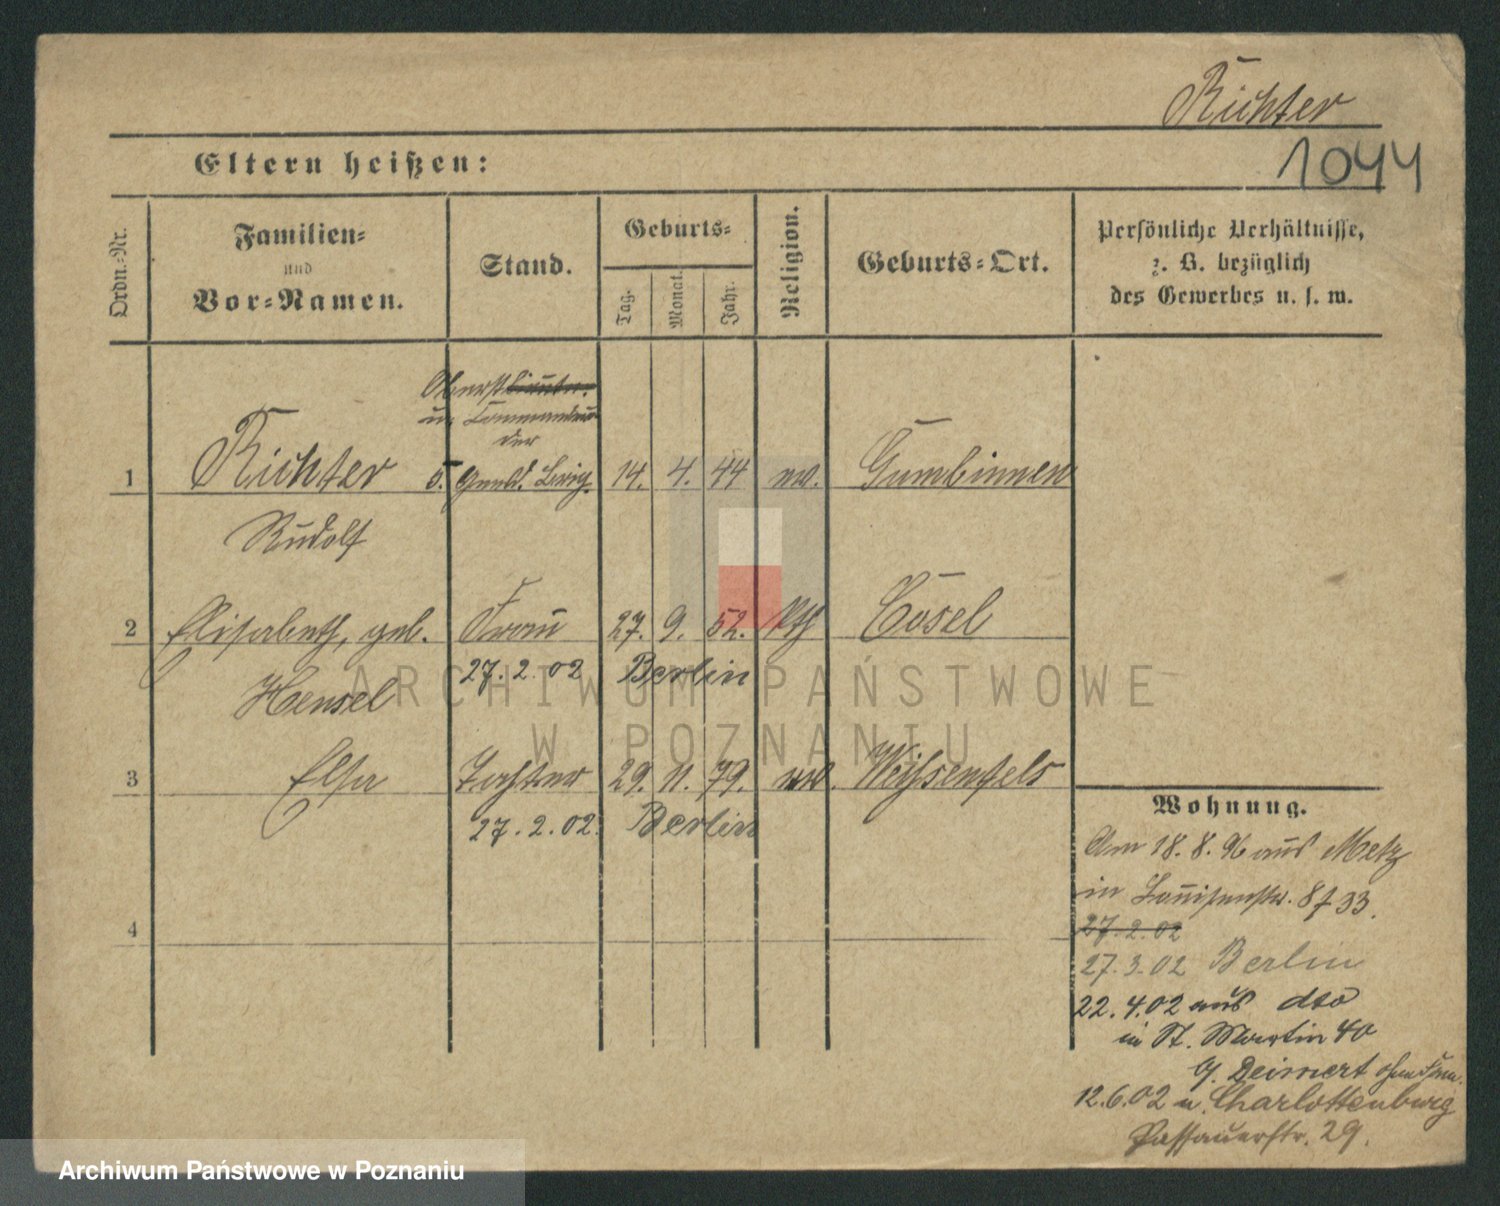 Richter
1044
Eltern heißen:
Ordn.-Nr.
Familien-
und
Vor-Namen.
Stand.
Geburts-
Tag.
Monat.
Jahr.
Religion.
Geburts-Ort.
Persönliche Verhältnisse,
z. B. bezüglich
des Gewerbes u. s. w.
Oberstlieutn.
u. Commandeur
der
1 Richter 5. Gend. Brig. 14. 4. 44 ev. Gumbinnen
Rudolf
2 Elisabeth, geb. Frau 27. 9. 52. kth Cosel
Hensel 27. 2. 02 Berlin
3 Elsa Tochter 29. 11. 79. ev. Weißenfels
27. 2. 02. Berlin
4
Wohnung.
Am 18. 8. 96 aus Metz
in Louisenstr. 8 f 33.
27. 2. 02
27. 3. 02 Berlin
22. 4. 02 aus dto
in St. Martin 40
12. 6. 02 n. Charlottenburg
Passauerstr. 29.
ARCHIWUM PAŃSTWOWE
W POZNANIU
Archiwum Państwowe w Poznaniu